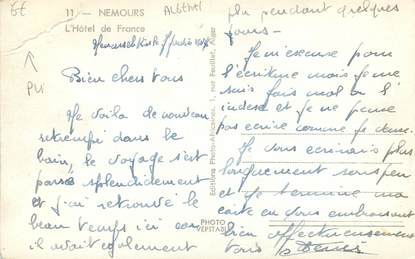 EE
ALGÉRIE
11 — NEMOURS
L'Hôtel de France
Pli
Bien chers tous
Me voila de nouveau
retrempé dans le
bain, le voyage s'est
passé splendidement
et j'ai retrouvé le
beau temps ici car
il avait également
plu pendant quelques
jours —
Je m'excuse pour
l'écriture mais je me
suis fais mal a l'
index et je ne peux
pas écrire comme je veux.
Je vous écrirais plus
longuement sous peu
et je termine ma
carte en vous embrassant
bien affectueusement
tous
Editions Photo-Africaines, 1, rue Feuillet, Alger
PHOTO
VERITABLE